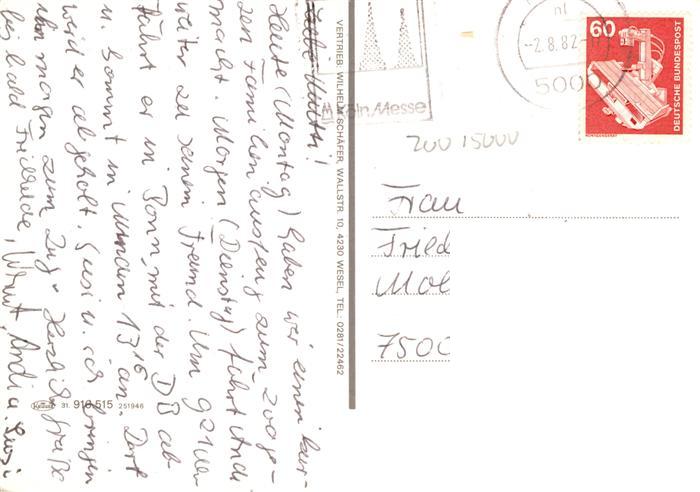 Liebe Mutti!
Heute (Montag) haben wir einen kur-
zen Familienausflug zum Zoo ge-
macht. Morgen (Dienstag) fährt Andi
weiter zu seinem Freund. Um 9 21 Uhr
fährt er in Bonn mit der DB ab
u. kommt in Minden 13 16 an. Dort
wird er abgeholt. Susi u. ich bringen
ihn morgen zum Zug. Herzliche Grüße
bis bald Friedhilde, Andi u. Susi
VERTRIEB: WILHELM SCHÄFER, WALLSTR. 10, 4230 WESEL, TEL.: 0281/22462
31. 910 515 251946
Köln/Messe
-2.8.82
5000
60
DEUTSCHE BUNDESPOST
200 15000
Frau
Fried
Mol
7500